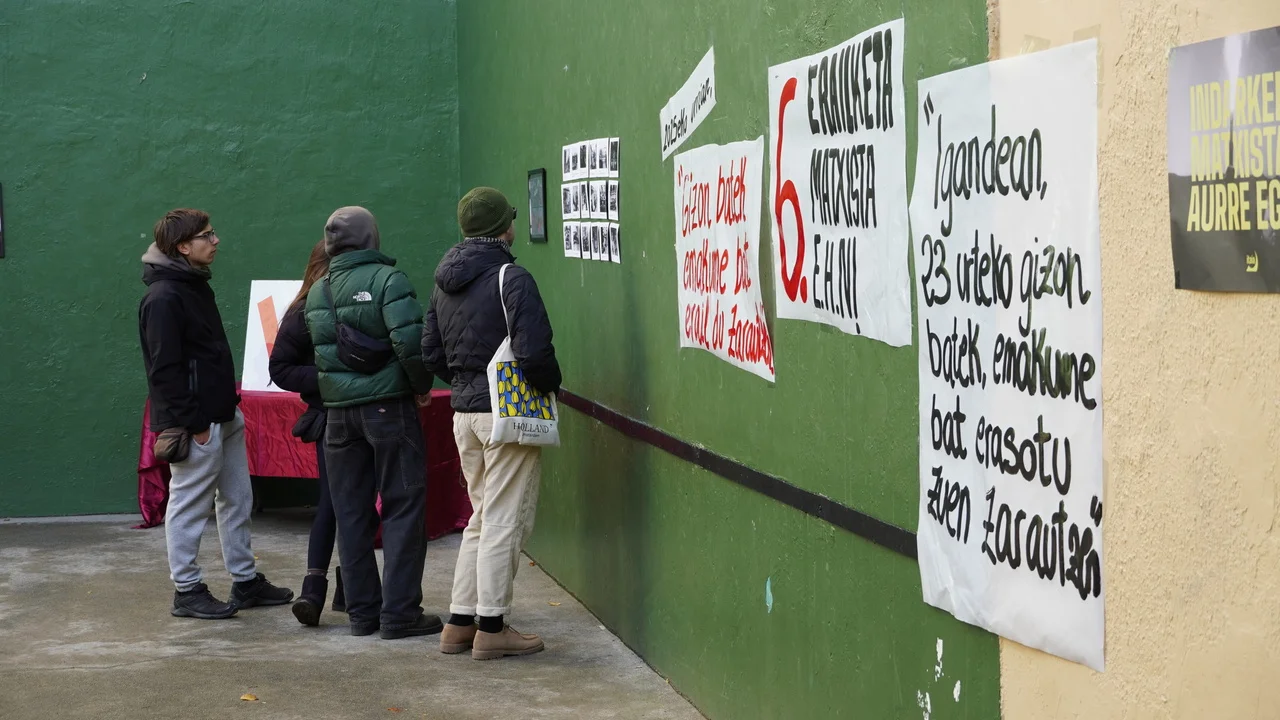 2025eko urriaz,
"Gizon batek
emakume bat
erail du Zarautzen
6.
ERAILKETA
MATXISTA
E.H.N!
"Igandean,
23 urteko gizon
batek, emakume
bat erasotu
zuen Zarautzen"
INDARKE
MATXIST
AURRE EG
THE NORTH FACE
HOLLAND